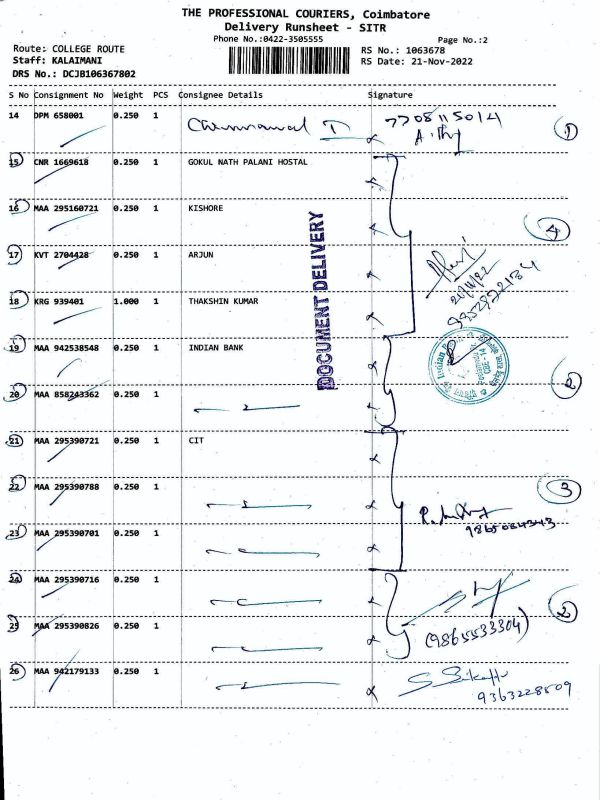 THE PROFESSIONAL COURIERS, Coimbatore
Delivery Runsheet - SITR
Phone No.:0422-3505555
Page No.:2
Route: COLLEGE ROUTE
RS No.: 1063678
Staff: KALAIMANI
RS Date: 21-Nov-2022
DRS No.: DCJB106367802
S No Consignment No Weight PCS Consignee Details Signature
14 DPM 658001 0.250 1 7708115014
①
15 CNR 1669618 0.250 1 GOKUL NATH PALANI HOSTAL
16 MAA 295160721 0.250 1 KISHORE
④
17 KVT 2704428 0.250 1 ARJUN
18 KRG 939401 1.000 1 THAKSHIN KUMAR
DOCUMENT DELIVERY
19 MAA 942538548 0.250 1 INDIAN BANK
②
20 MAA 858243362 0.250 1
21 MAA 295390721 0.250 1 CIT
22 MAA 295390788 0.250 1
③
23 MAA 295390701 0.250 1
9865084343
24 MAA 295390716 0.250 1
②
25 MAA 295390826 0.250 1
(9865533304)
26 MAA 942179133 0.250 1
9363228509